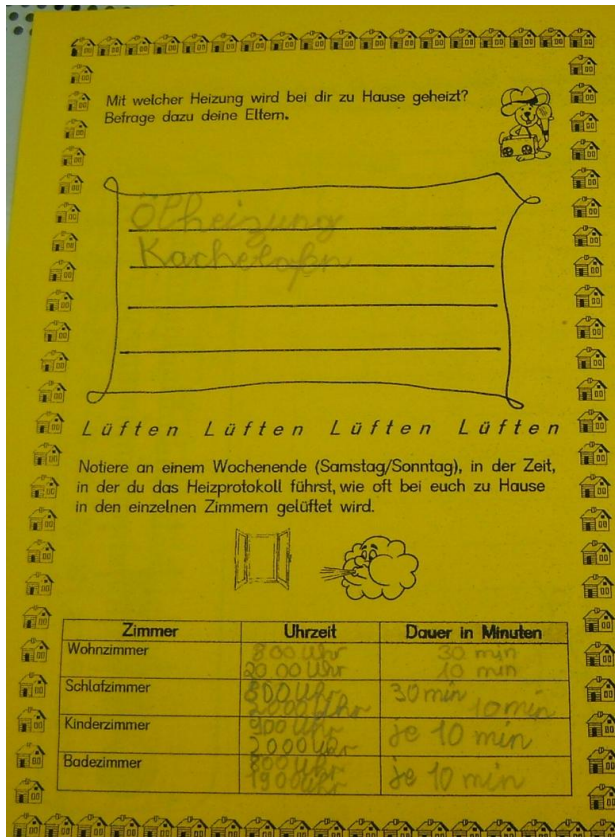 Mit welcher Heizung wird bei dir zu Hause geheizt?
Befrage dazu deine Eltern.
Ölheizung
Kachelofen
Lüften Lüften Lüften Lüften
Notiere an einem Wochenende (Samstag/Sonntag), in der Zeit,
in der du das Heizprotokoll führst, wie oft bei euch zu Hause
in den einzelnen Zimmern gelüftet wird.
Zimmer Uhrzeit Dauer in Minuten
Wohnzimmer 800 Uhr 30 min
2000 Uhr 10 min
Schlafzimmer 800 Uhr 30 min
2000 Uhr 10 min
Kinderzimmer 900 Uhr je 10 min
2000 Uhr
Badezimmer 800 Uhr je 10 min
1900 Uhr